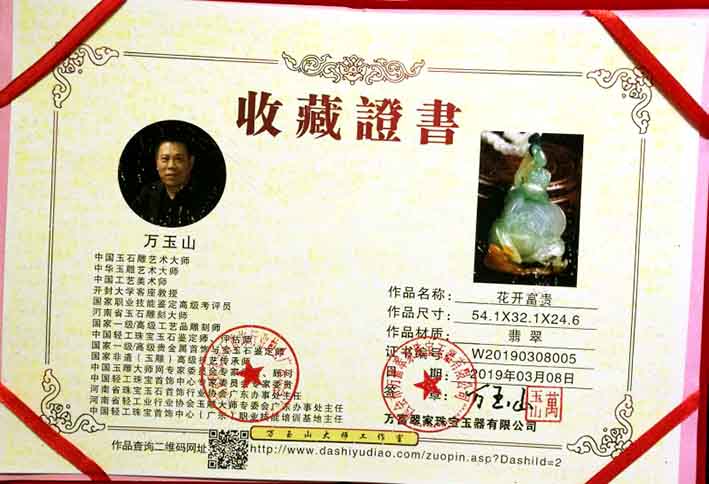 收藏證書
万玉山
中国玉石雕艺术大师
中华玉雕艺术大师
中国工艺美术师
开封大学客座教授
国家职业技能鉴定高级考评员
河南省玉石雕刻大师
国家一级/高级工艺品雕刻师
中国轻工珠宝玉石鉴定师、评估师
国家一级/高级贵金属首饰与宝玉石鉴定师
国家非遗（玉雕）高级技艺传承师
中国玉雕大师网专家委员会专家、顾问
中国轻工珠宝首饰中心专家委员会专家委员
河南省珠宝玉石首饰行业协会广东办事处主任
河南省工艺美术行业协会玉雕大师专委会广东办事处主任
中国轻工珠宝首饰中心（广东）职业技能培训基地主任
作品名称：花开富贵
作品尺寸：54.1X32.1X24.6
作品材质：翡翠
证书编号：W20190308005
日期：2019年03月08日
签章：万玉山
萬玉山
万富翠家珠宝玉器有限公司
作品查询二维码网址
万玉山大师工作室
http://www.dashiyudiao.com/zuopin.asp?Dashild=2